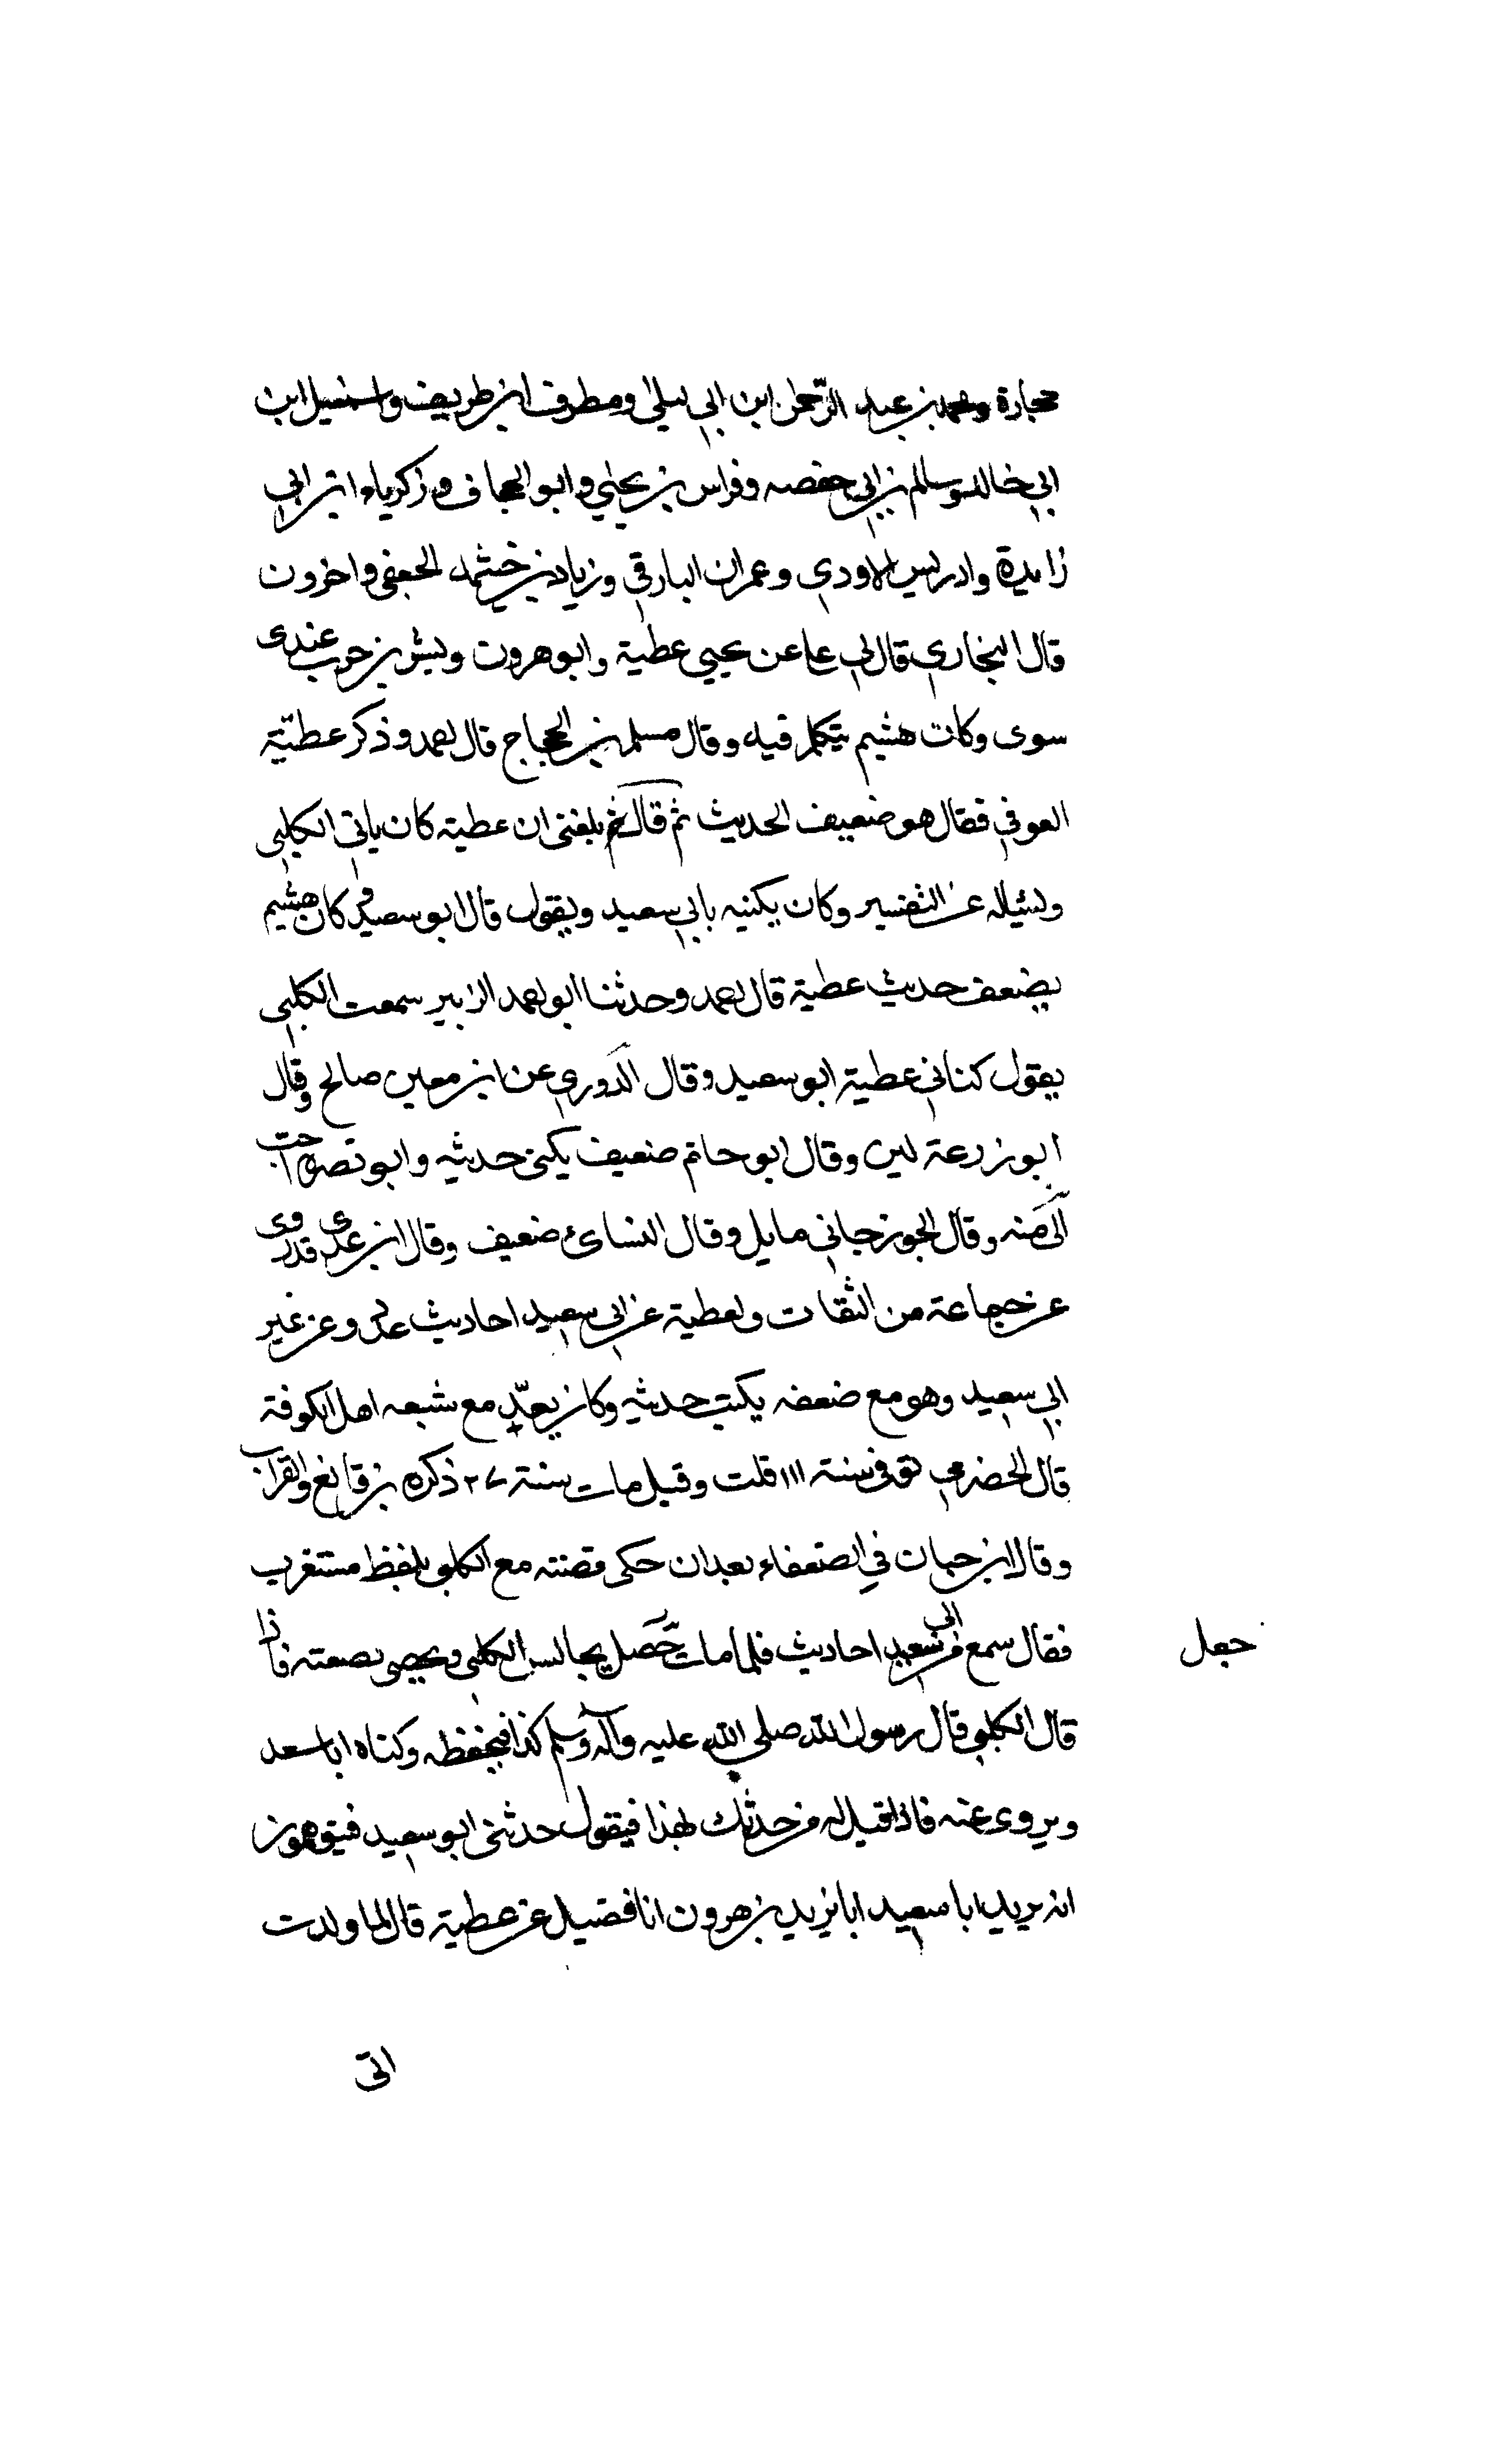 حجارة ومحمد بن عبد الرحمٰن ابن ابي ليلى ومطرف ابن طريف واسمعيل ابن
ابي خالد وسالم بن ابي حفصه وفراس بن يحيٰي وابو الجحاف و زكرياء ابن ابي
زايدة وادريس الاودي وعمران البارقي وزياد بن خيثمه الجعفي واخرون
قال البخاري قال لي علي عن يحيي عطية وابو هرون وبشر بن حرب عندى
سوى وكان هشيم يتكلم فيه وقال مسلم بن الحجاج قال احمد وذكر عطيّة
العوفي فقال هو ضعيف الحديث ثم قال بلغنى ان عطية كان ياتي الكلبي
ويسئيله عن التفسير وكان يكنيه بابي سعيد ويقول قال ابو سعيد وكان هشيم
يضعف حديث عطية قال احمد وحدثنا ابو احمد الزبير سمعت الكلبي
يقول كناني عطية ابو سعيد وقال الدوري عن ابن معين صالح وقال
ابو زرعة لين وقال ابو حاتم ضعيف يكتب حديثه وابو نصره احب
الى منه وقال الجوزجاني مايل وقال النسائ ضعيف وقال ابن عدى قد روى
عن جماعة من الثقات ولعطية عن ابي سعيد احاديث عدد وعن غير
ابي سعيد وهو مع ضعفه يكتب حديثه وكان يعدّ مع شيعه اهل الكوفة
قال الحضرمي توفى سنة ١١١ قلت وقيل مات سنة ٢٧ ذكره بن قانع والقراب
وقال ابن حبان في الضعفاء بعد ان حكى قصته مع الكلبي بلفظ مستغرب
فقال سمع من ابي سعيد احاديث فلما مات حصل يجالس الكلبي ويحضى بصفته فاذا
جعل
قال الكلبي قال رسول الله صلي الله عليه وآله وسلم كذا فيحفظه وكناه ابا سعد
ويروى عنه فاذا قيل له من حدثك بهذا فيقول حدثنى ابو سعيد فيتوهمون
انه يريد ابا سعيد ابا يزيد بن هرون انا فضيل عن عطية قال لما ولدت
اتى